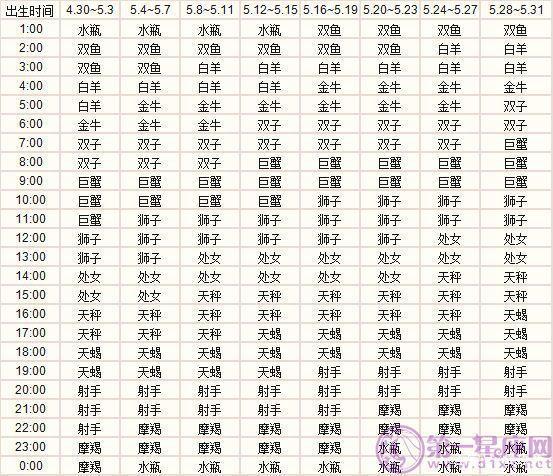 出生时间 4.30~5.3 5.4~5.7 5.8~5.11 5.12~5.15 5.16~5.19 5.20~5.23 5.24~5.27 5.28~5.31
1:00 水瓶 水瓶 水瓶 水瓶 双鱼 双鱼 双鱼 双鱼
2:00 双鱼 双鱼 双鱼 双鱼 双鱼 双鱼 白羊 白羊
3:00 双鱼 双鱼 白羊 白羊 白羊 白羊 白羊 白羊
4:00 白羊 白羊 白羊 白羊 金牛 金牛 金牛 金牛
5:00 白羊 金牛 金牛 金牛 金牛 金牛 金牛 双子
6:00 金牛 金牛 金牛 双子 双子 双子 双子 双子
7:00 双子 双子 双子 双子 双子 双子 双子 巨蟹
8:00 双子 双子 双子 巨蟹 巨蟹 巨蟹 巨蟹 巨蟹
9:00 巨蟹 巨蟹 巨蟹 巨蟹 巨蟹 巨蟹 巨蟹 巨蟹
10:00 巨蟹 巨蟹 巨蟹 巨蟹 狮子 狮子 狮子 狮子
11:00 巨蟹 狮子 狮子 狮子 狮子 狮子 狮子 狮子
12:00 狮子 狮子 狮子 狮子 狮子 狮子 处女 处女
13:00 狮子 狮子 处女 处女 处女 处女 处女 处女
14:00 处女 处女 处女 处女 处女 处女 天秤 天秤
15:00 处女 处女 天秤 天秤 天秤 天秤 天秤 天秤
16:00 天秤 天秤 天秤 天秤 天秤 天秤 天秤 天蝎
17:00 天秤 天秤 天秤 天蝎 天蝎 天蝎 天蝎 天蝎
18:00 天蝎 天蝎 天蝎 天蝎 天蝎 天蝎 天蝎 天蝎
19:00 天蝎 天蝎 天蝎 天蝎 射手 射手 射手 射手
20:00 射手 射手 射手 射手 射手 射手 射手 射手
21:00 射手 射手 射手 射手 射手 摩羯 摩羯 摩羯
22:00 射手 摩羯 摩羯 摩羯 摩羯 摩羯 摩羯 摩羯
23:00 摩羯 摩羯 摩羯 摩羯 摩羯 水瓶 水瓶 水瓶
0:00 摩羯 水瓶 水瓶 水瓶 水瓶 水瓶 水瓶 水瓶
第一星座网
www.d1xz.net